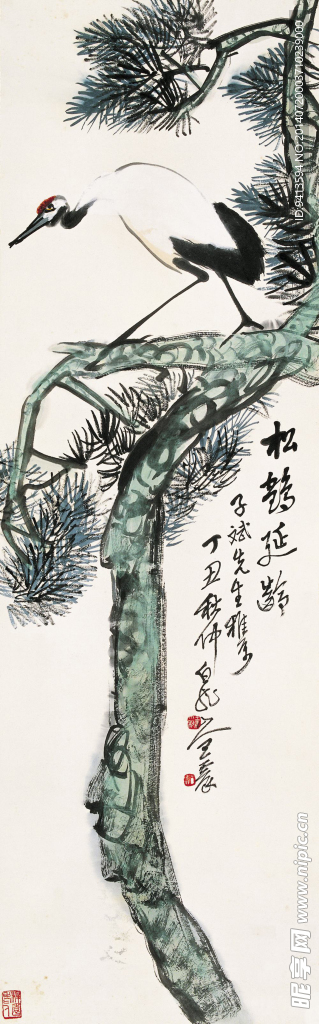 松鹤延龄
子斌先生雅属
丁丑秋仲白龙山人王震
ID:9413594 NO:20140720003710239000
昵享网 www.nipic.cn